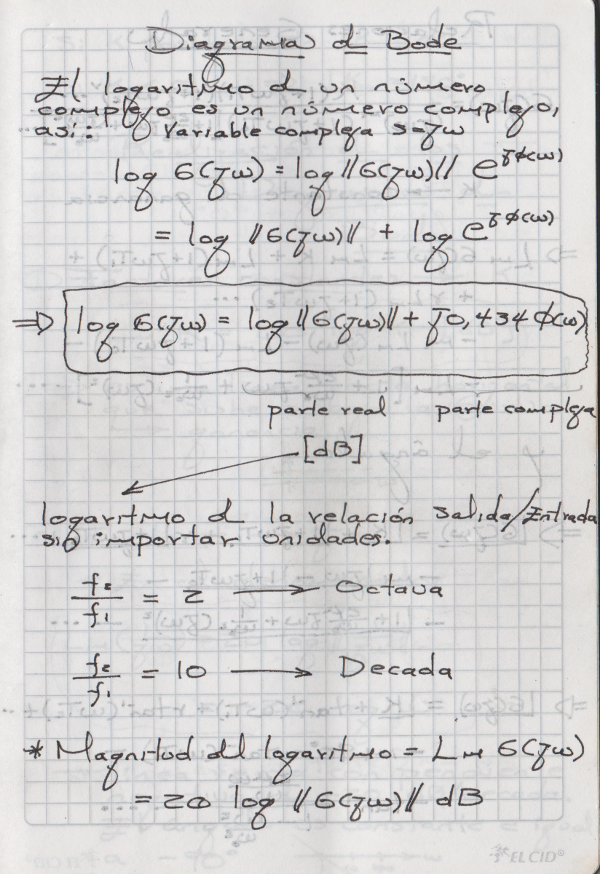 Diagrama d Bode
El logaritmo d un número
complejo es un número complejo,
así: Variable compleja s=jω
log G(jω) = log ||G(jω)|| e^jφ(ω)
= log ||G(jω)|| + log e^jφ(ω)
⇒ log G(jω) = log ||G(jω)|| + j0,434 φ(ω)
parte real parte compleja
[dB]
logaritmo d la relación Salida/Entrada
sin importar unidades.
f2/f1 = 2 → Octava
f2/f1 = 10 → Decada
* Magnitud del logaritmo = Lm G(jω)
= 20 log ||G(jω)|| dB
EL CID®